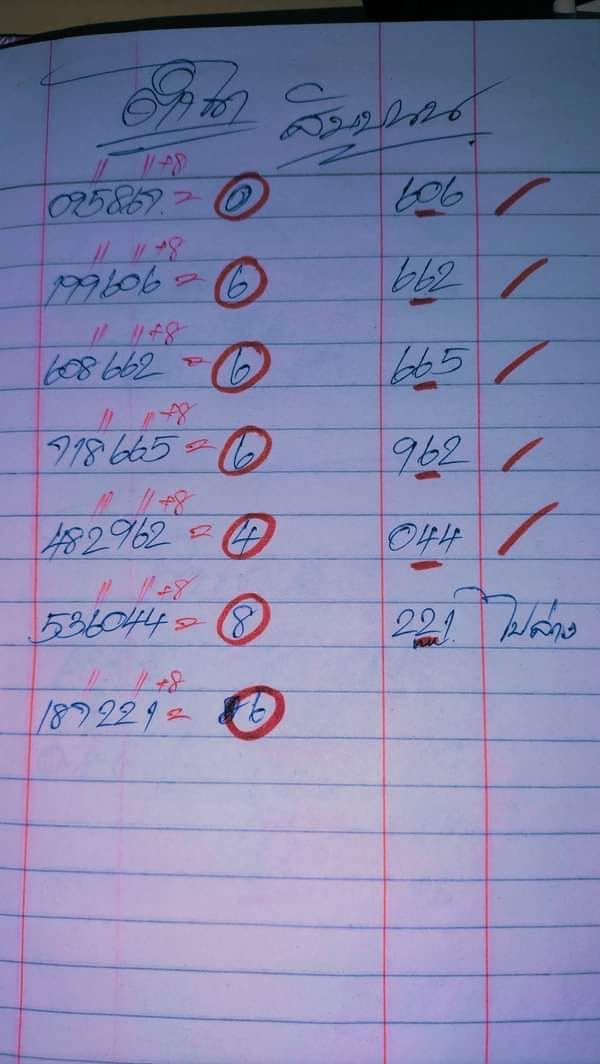 สิบบน
// // +8
095867 = 0 606
// // +8
199606 = 6 662
// // +8
608662 = 6 665
// // +8
718665 = 6 962
// // +8
482962 = 4 044
// // +8
536044 = 8 221 ไปล่าง
// // +8
187221 = 6